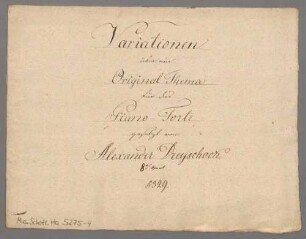 Variationen
über ein
Original Thema
für das
Piano Forte
von
Alexander Dreyschock
1829
Mus.Schott. Ha